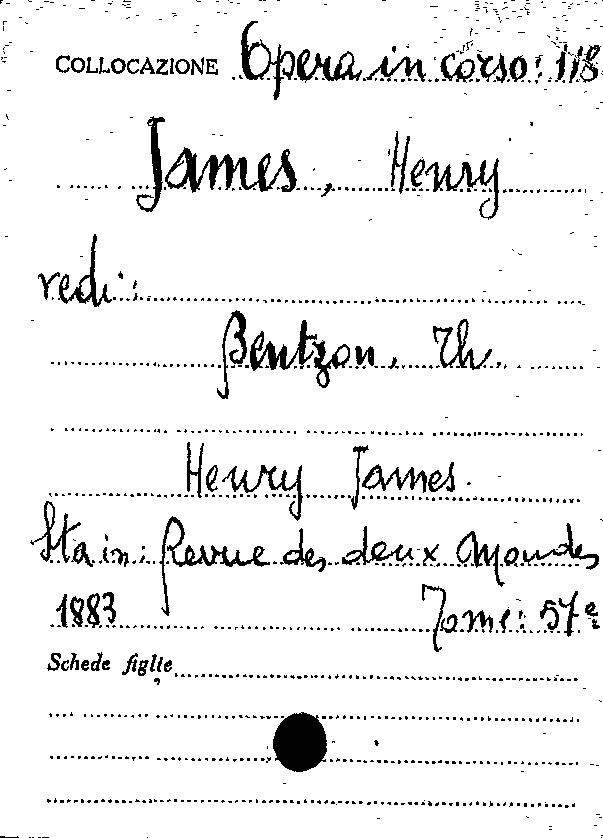 COLLOCAZIONE Opera in corso: 118
James, Henry
vedi:
Bentzon, Th.
Henry James.
Sta in: Revue des deux Mondes
1883 Tome: 57e
Schede figlie